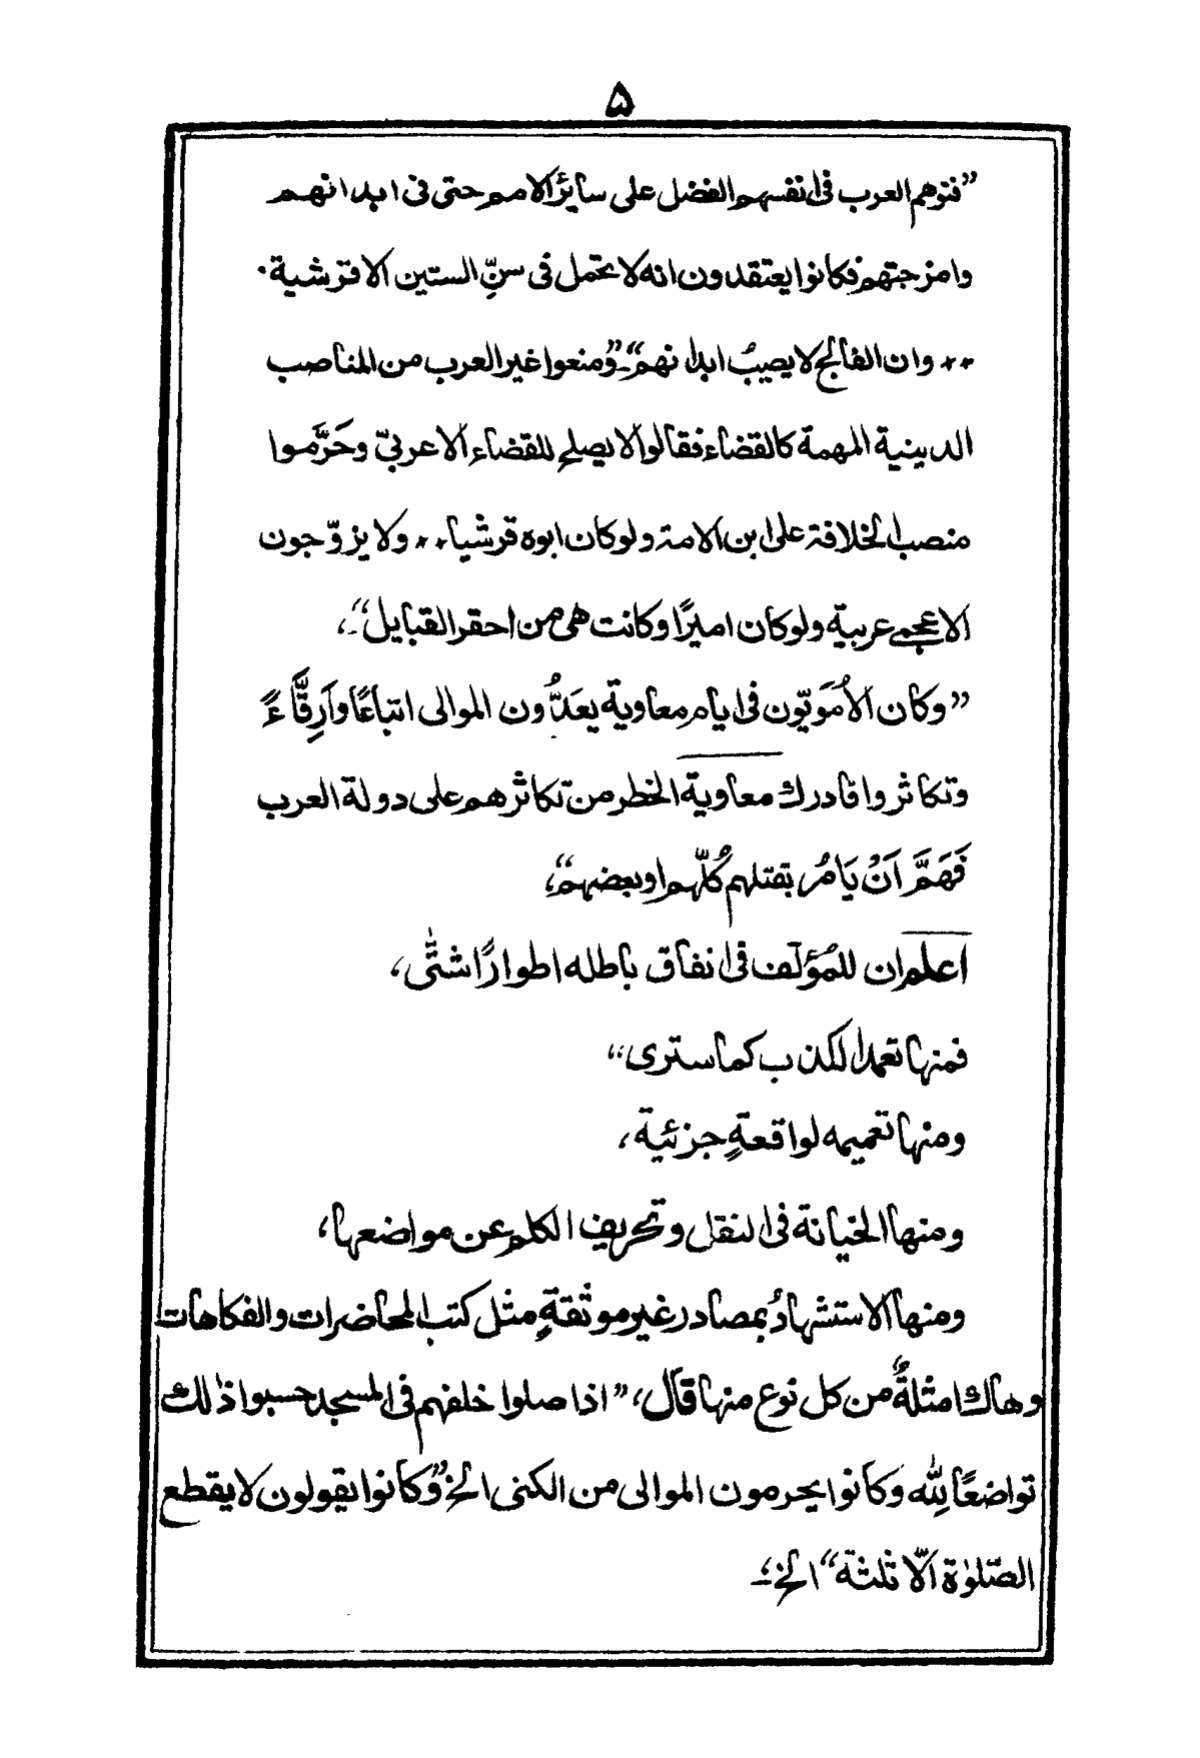 ۵
”فتوهم العرب فی انفسهم الفضل علی سایرُ الامم حتی فی ابدانهم
وامزجتهم فکانوا یعتقدون انه لا تحمل فی سنِّ الستین الا قرشیة۰
۰۰ وان الفالج لا یصیبُ ابدانهم“۔ ”ومنعوا غیر العرب من المناصب
الدینیة المهمة کالقضاء فقالوا لا یصلح للقضاء الا عربیّ وحَرَّموا
منصب الخلافة علی ابن الامة ولو کان ابوه قرشیا۰۰ ولا یزوّجون
الاعجمی عربیة ولو کان امیرًا وکانت هی من احقر القبایل“۔،
”وکان الأُمَوِیّون فی ایام معاویة یعَدُّون الموالی اتباعًا وآرِقَّاءً
وتکاثروا فادرك معاویة الخطر من تکاثرهم علی دولة العرب
فَهَمَّ اَنْ یَامُر بقتلهم کُلّهم او بعضهم“،
اعلم ان للمُؤلّف فی انفاق باطله اطوارًا شتّٰی،
فمنها تعمد الکذب کما ستری،،
ومنها تعمیمه لواقعةٍ جزئیة،
ومنها الخیانة فی النقل وتحریف الکلم عن مواضعها،
ومنها الاستشهادُ بمصادر غیر موثقةٍ مثل کتب المحاضرات والفکاهات
وهاك امثلةٌ من کل نوع منها قال، ”اذا صلوا خلفهم فی المسجد حسبوا ذٰلك
تواضعًا لِلّٰه وکانوا یحرمون الموالی من الکنی الخ ”وکانوا یقولون لا یقطع
الصّلوٰة الّا ثلثة“ الخ؛۔